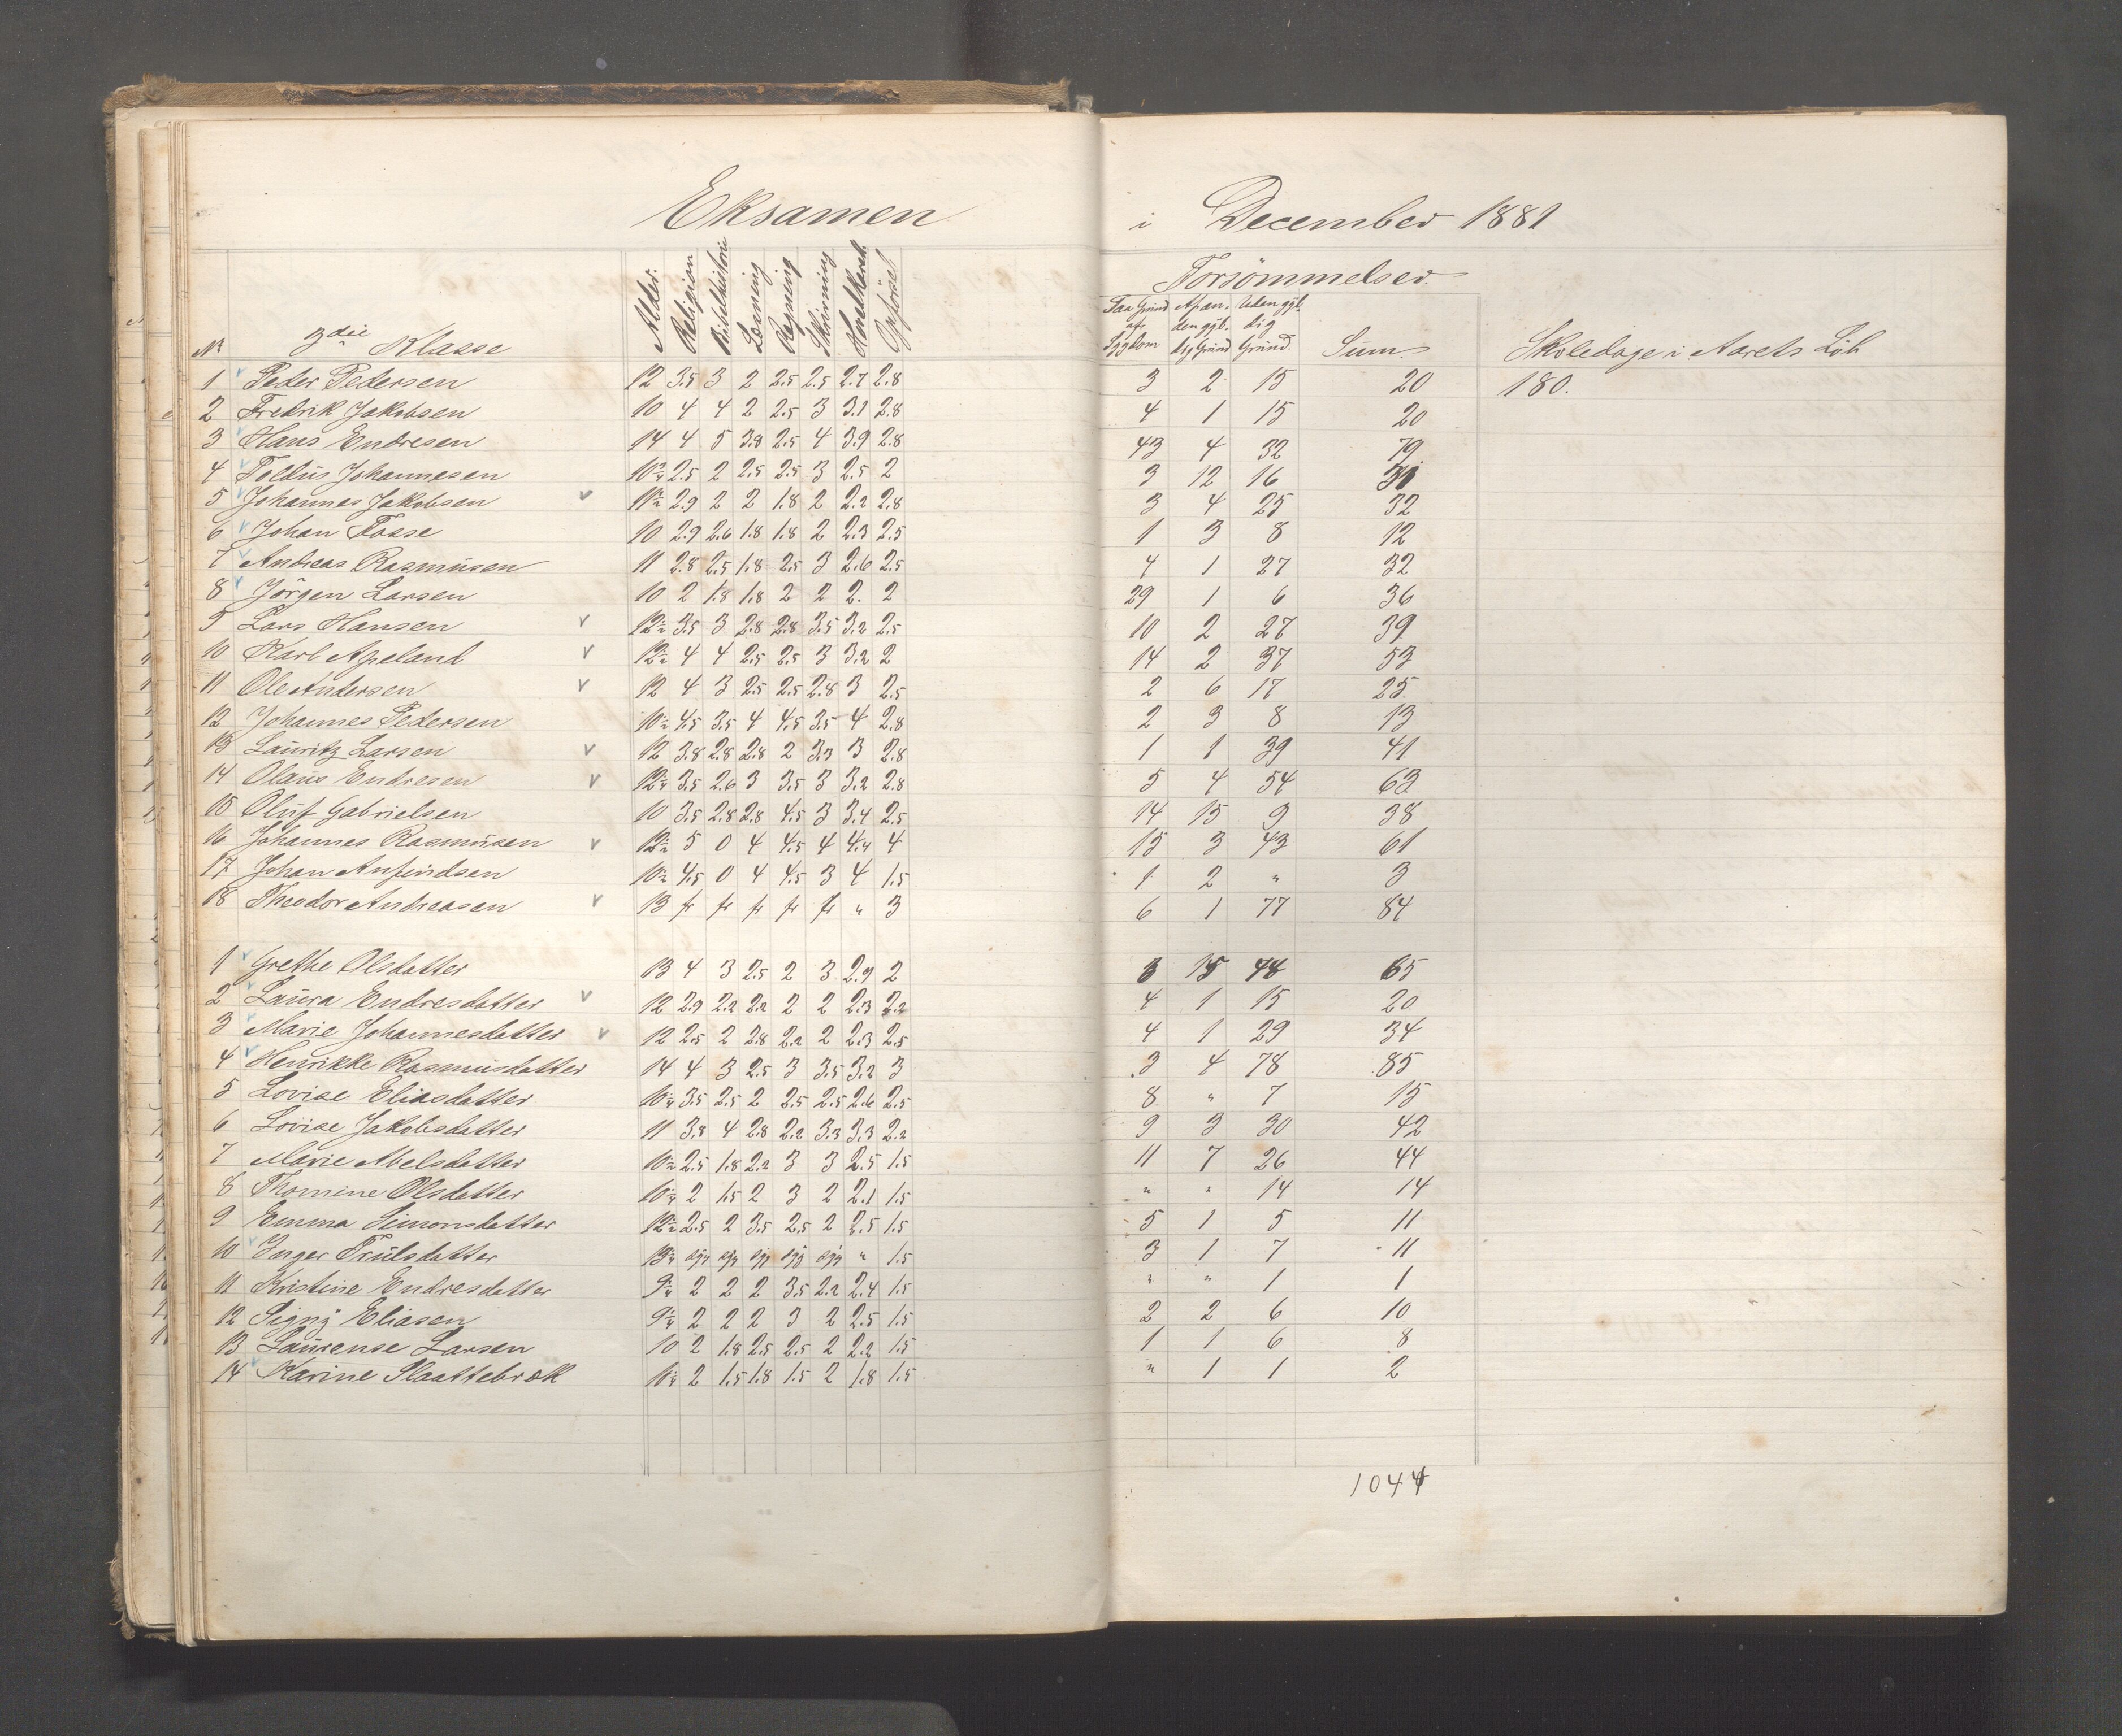 Eksamen i December 1881
Forsömmelser.
Nr 3die Klasse Alder. Religion Bibelhistorie Læsning Regning Skrivning Hovedkarakt. Opförsel
Paa Grund af Sygdom Af an- den gyl- dig Grund Uden gyl- dig Grund. Sum. Skoledage i Aarets Löb
1 Peder Pedersen 12 3.5 3 2 2.5 2.5 2.7 2.8 3 2 15 20 180.
2 Fredrik Jakobsen 10 4 4 2 2.5 3 3.1 2.8 4 1 15 20
3 Hans Endresen 14 4 5 3.8 2.5 4 3.9 2.8 43 4 32 79
4 Poldus Johannesen 10 2.5 2 2.5 2.5 3 2.5 2 3 12 16 31
5 Johannes Jakobsen v 11 2.9 2 2 1.8 2 2.2 2.8 3 4 25 32
6 Johan Fosse 10 2.9 2.6 1.8 1.8 2 2.3 2.5 1 3 8 12
7 Andreas Rasmusen 11 2.8 2.5 1.8 2.5 3 2.6 2.5 4 1 27 32
8 Jörgen Larsen 10 2 1.8 1.8 2 2 2. 2 29 1 6 36
9 Lars Hansen v 12 3.5 3 2.8 2.8 3.5 3.2 2.5 10 2 27 39
10 Karl Apeland v 12 4 4 2.5 2.5 3 3.2 2 14 2 37 53
11 Ole Andersen v 12 4 3 2.5 2.5 2.8 3 2.5 2 6 17 25
12 Johannes Pedersen 10 4.5 3.5 4 4.5 3.5 4 2.8 2 3 8 13
13 Lauritz Larsen v 12 3.8 2.8 2.8 2 3.3 3 2.8 1 1 39 41
14 Olaus Endresen v 12 3.5 2.6 3 3.5 3 3.2 2.8 5 4 54 63
15 Oluf Gabrielsen 10 3.5 2.8 2.8 4.5 3 3.4 2.5 14 15 9 38
16 Johannes Rasmusen v 12 5 0 4 4.5 4 4.4 4 15 3 43 61
17 Johan Anfindsen 10 4.5 0 4 4.5 3 4 1.5 1 2 " 3
18 Theodor Andreasen v 13 fr fr fr fr fr " 3 6 1 77 84
1 Grethe Olsdatter 13 4 3 2.5 2 3 2.9 2 3 15 48 65
2 Laura Endresdatter v 12 2.9 2.2 2.2 2 2 2.3 2.2 4 1 15 20
3 Marie Johannesdatter v 12 2.5 2 2.8 2.2 2 2.3 2.5 4 1 29 34
4 Henrikke Rasmusdatter 14 4 3 2.5 3 3.5 3.2 3 3 4 78 85
5 Lovise Eliasdatter 10 3.5 2.5 2 2.5 2.5 2.6 2.5 8 " 7 15
6 Lovise Jakobsdatter 11 3.8 4 2.8 2.2 3.3 3.3 2.2 9 3 30 42
7 Marie Abelsdatter 10 2.5 1.8 2.2 3 3 2.5 1.5 11 7 26 44
8 Thomine Olsdatter 10 2 1.5 2 3 2 2.1 1.5 " " 14 14
9 Emma Simonsdatter 12 2.5 2 3.5 2.5 2 2.5 1.5 5 1 5 11
10 Inger Trulsdatter 13 syg syg syg syg syg " 1.5 3 1 7 11
11 Kristine Endresdatter 9 2 2 2 3.5 2.2 2.4 1.5 " " 1 1
12 Signy Eliasen 9 2 2 2 3 2 2.5 1.5 2 2 6 10
13 Laurense Larsen 10 2 1.8 2.5 2.5 2 2.2 1.5 1 1 6 8
14 Karine Slaattebræk 10 2 1.5 1.8 1.5 2 1.8 1.5 " 1 1 2
1044